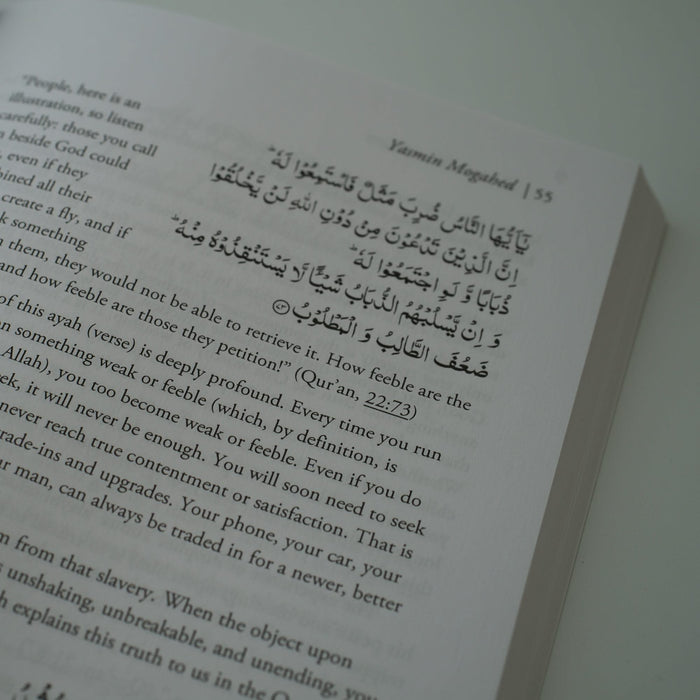 Yasmin Mogahed | 55
"People, here is an
illustration, so listen
carefully: those you call
beside God could
even if they
all their
create a fly, and if
something
them, they would not be able to retrieve it. How feeble are the
and how feeble are those they petition!" (Qur'an, 22:73)
يَٰٓأَيُّهَا النَّاسُ ضُرِبَ مَثَلٌ فَاسْتَمِعُوْا لَهٗ ؕ
اِنَّ الَّذِيْنَ تَدْعُوْنَ مِنْ دُوْنِ اللّٰهِ لَنْ يَّخْلُقُوْا
ذُبَابًا وَّ لَوِ اجْتَمَعُوْا لَهٗ ؕ
وَ اِنْ يَّسْلُبْهُمُ الذُّبَابُ شَيْـًٔا لَّا يَسْتَنْقِذُوْهُ مِنْهُ ؕ
ضَعُفَ الطَّالِبُ وَ الْمَطْلُوْبُ ﴿۷۳﴾
of this ayah (verse) is deeply profound. Every time you run
something weak or feeble (which, by definition, is
Allah), you too become weak or feeble. Even if you do
it will never be enough. You will soon need to seek
never reach true contentment or satisfaction. That is
and upgrades. Your phone, your car, your
man, can always be traded in for a newer, better
from that slavery. When the object upon
unshaking, unbreakable, and unending, you
explains this truth to us in the